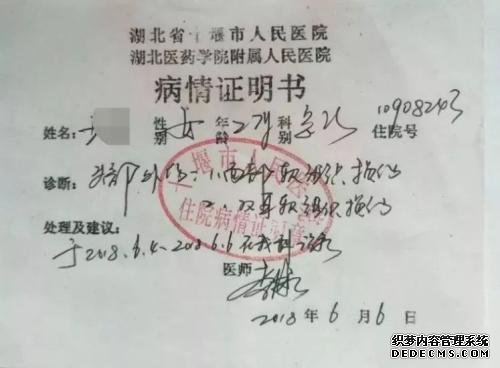 湖北省十堰市人民医院
湖北医药学院附属人民医院
病情证明书
姓名: 性别 女 年龄 科别 急诊 住院号 10908243
诊断: 头部外伤: 1.面部软组织损伤
2.双耳软组织损伤
十堰市人民医
住院病情证明章
处理及建议:
于2018.6.4-2018.6.6在我科
医师
2018年6月6日
织梦内容管理系统
DEDECMS.COM